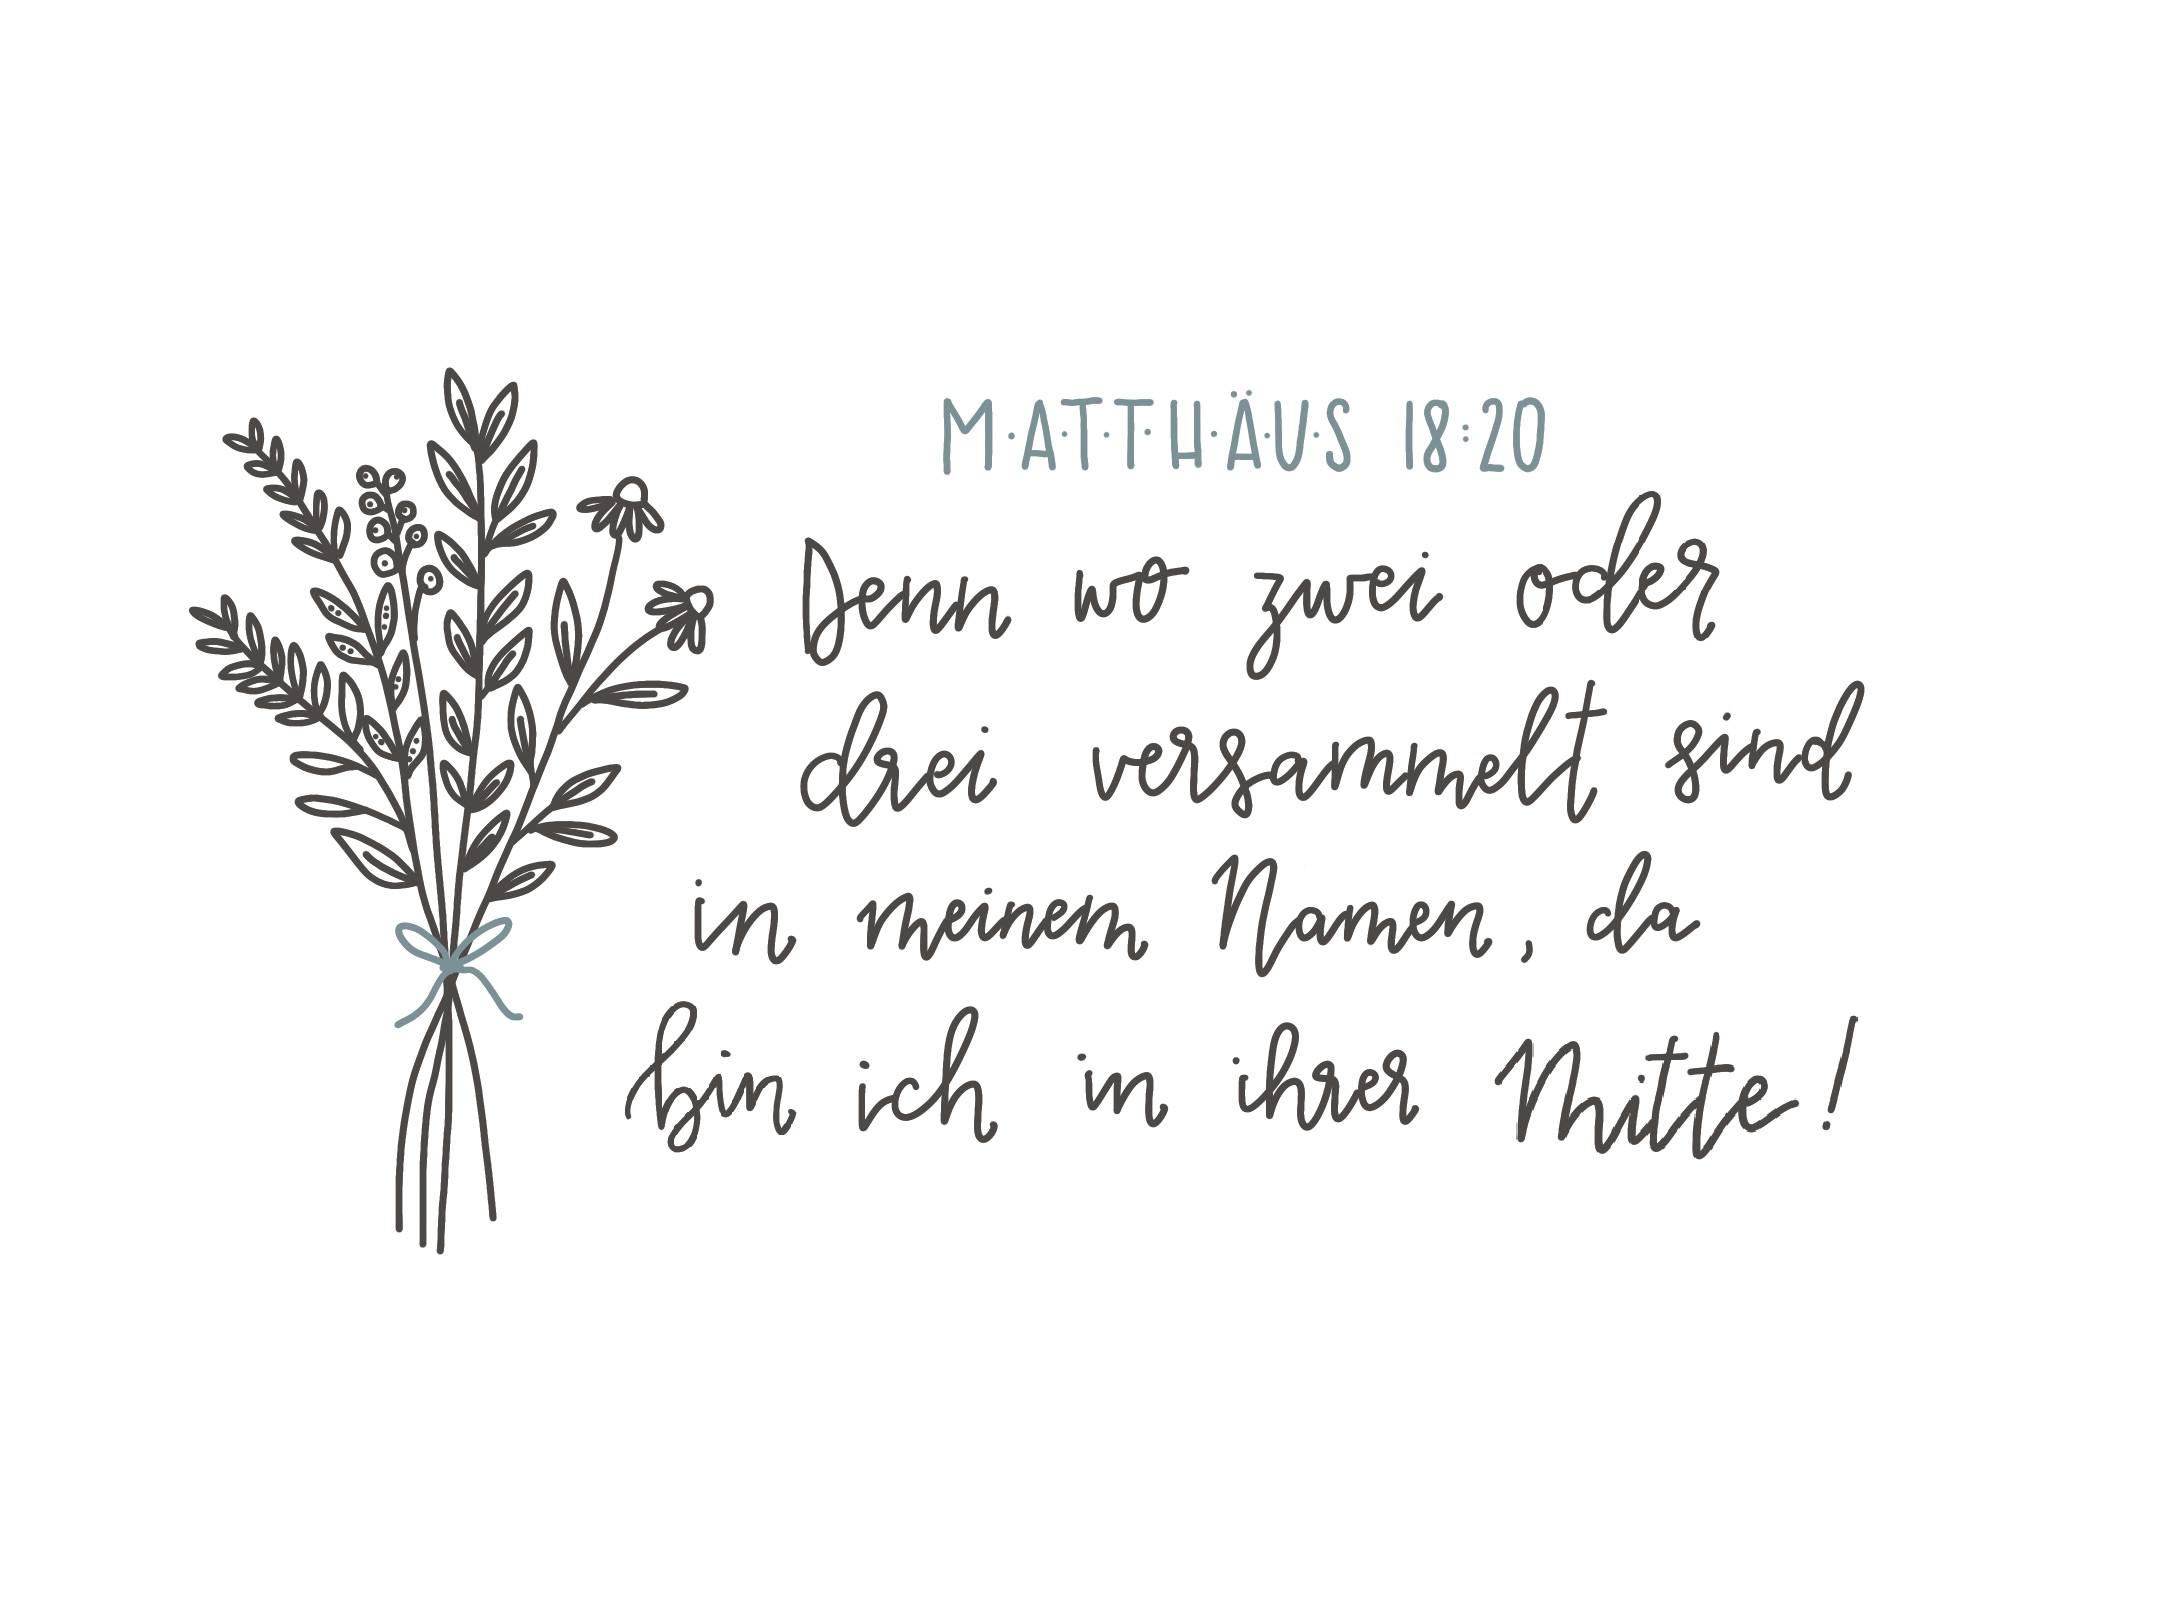 M·A·T·T·H·Ä·U·S 18:20
Denn wo zwei oder
drei versammelt sind
in meinem Namen, da
bin ich in ihrer Mitte!